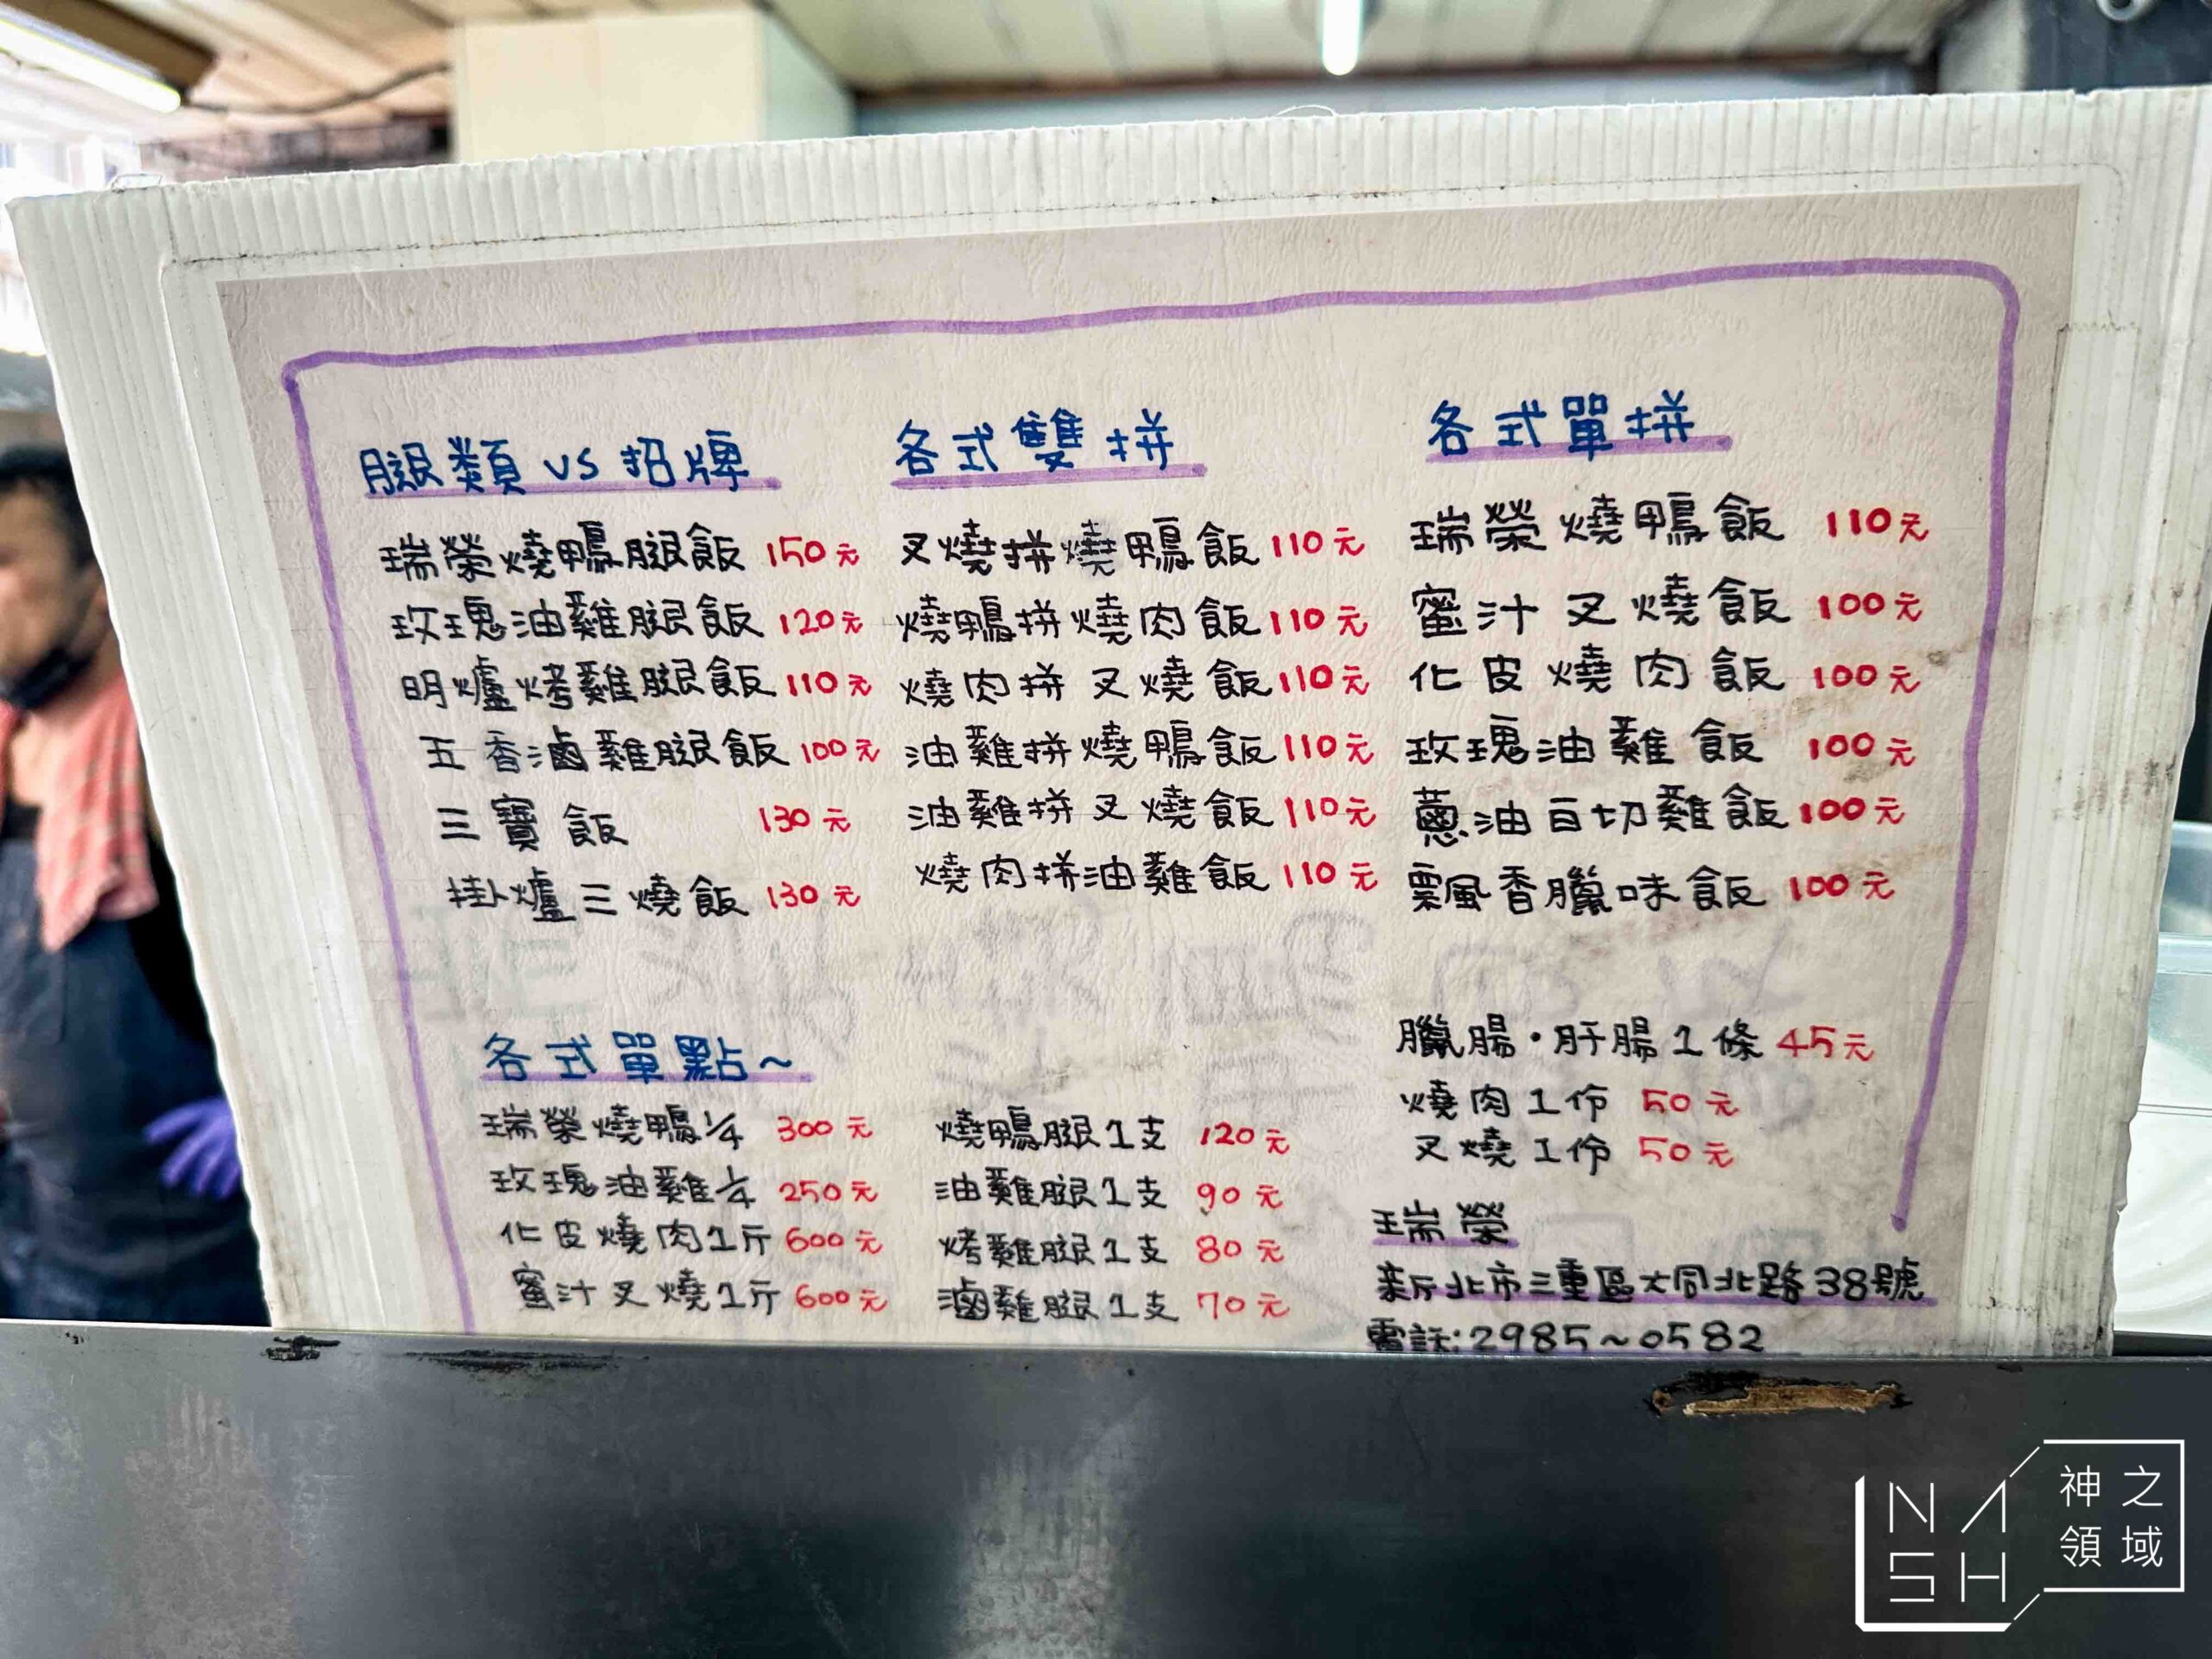 腿類 VS 招牌
瑞榮燒鴨腿飯 150元
玫瑰油雞腿飯 120元
明爐烤雞腿飯 110元
五香滷雞腿飯 100元
三寶飯 130元
掛爐三燒飯 130元
各式雙拼
叉燒拼燒鴨飯 110元
燒鴨拼燒肉飯 110元
燒肉拼叉燒飯 110元
油雞拼燒鴨飯 110元
油雞拼叉燒飯 110元
燒肉拼油雞飯 110元
各式單拼
瑞榮燒鴨飯 110元
蜜汁叉燒飯 100元
化皮燒肉飯 100元
玫瑰油雞飯 100元
蔥油白切雞飯 100元
飄香臘味飯 100元
各式單點~
瑞榮燒鴨1/4 300元
玫瑰油雞1/4 250元
化皮燒肉1斤 600元
蜜汁叉燒1斤 600元
燒鴨腿1支 120元
油雞腿1支 90元
烤雞腿1支 80元
滷雞腿1支 70元
臘腸·肝腸1條 45元
燒肉1份 50元
叉燒1份 50元
瑞榮
新北市三重區大同北路38號
電話:2985~0582
NASH
神之
領域